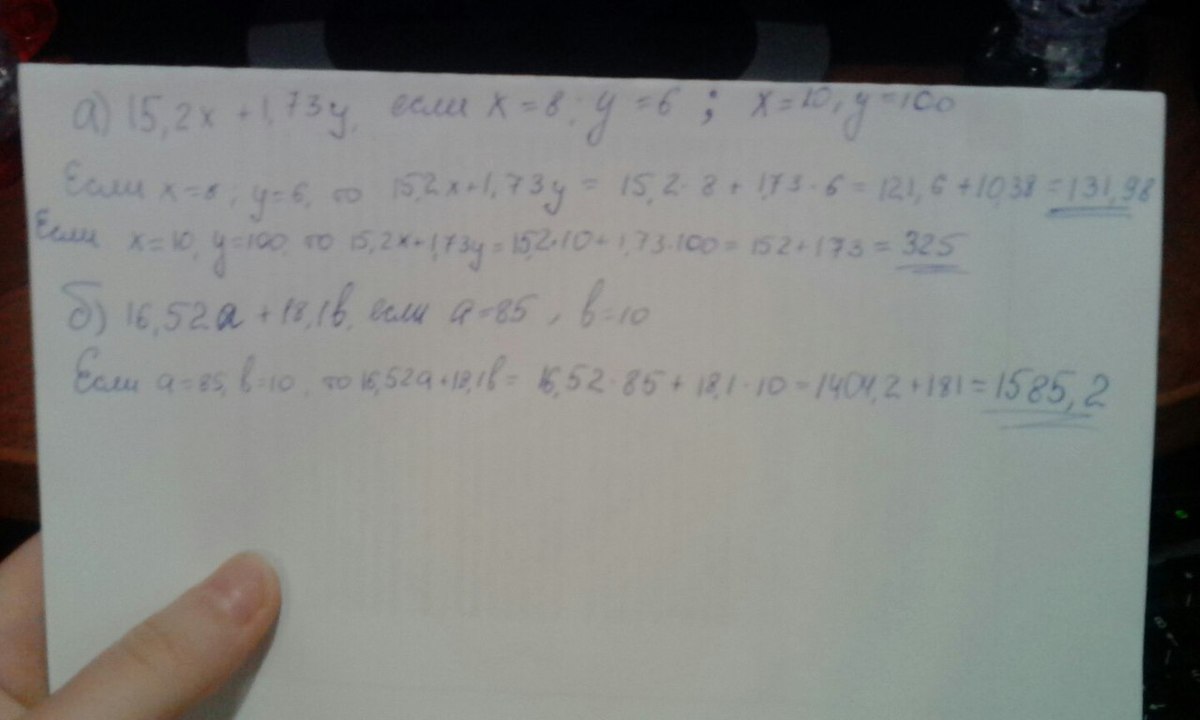 а) 15,2x + 1,73y, если x = 8; y = 6 ; x = 10, y = 100
Если x = 8; y = 6, то 15,2x + 1,73y = 15,2 · 8 + 1,73 · 6 = 121,6 + 10,38 = 131,98
Если x = 10, y = 100, то 15,2x + 1,73y = 15,2 · 10 + 1,73 · 100 = 152 + 173 = 325
б) 16,52a + 18,1b, если a = 85, b = 10
Если a = 85, b = 10, то 16,52a + 18,1b = 16,52 · 85 + 18,1 · 10 = 1404,2 + 181 = 1585,2